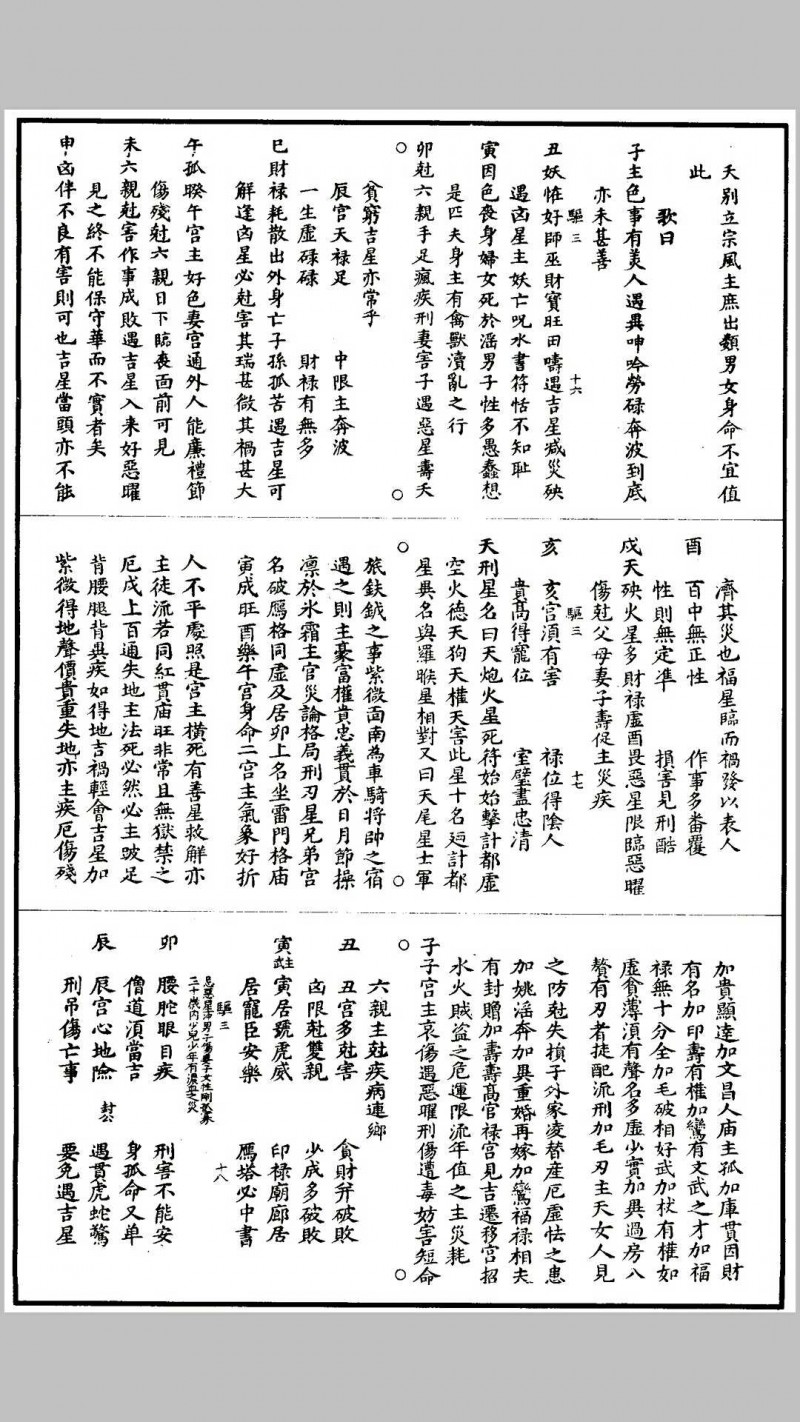 夭别立宗風主庶出類男女身命不宜值
此
歌曰
子主色事有美人遇異呻吟勞碌奔波到底
亦未甚善
驅三 十六
丑妖怪好師巫財寶旺田疇遇吉星減災殃
遇凶星主妖亡呪水書符恬不知恥
寅因色喪身婦女死於滛男子性多愚蠢想
是匹夫身主有禽獸瀆亂之行
卯尅六親手足瘋疾刑妻害子遇惡星壽夭
貧窮吉星亦常乎
辰宮天禄足 中限主奔波
一生虛碌碌 財禄有無多
巳財禄耗散出外身亡子孫孤苦遇吉星可
解逢凶星必尅害其瑞甚微其禍甚大
午孤暌午宮主好色妻宮通外人能廉禮節
傷殘尅六親日下臨喪面前可見
未六親尅害作事成敗遇吉星入来好惡曜
見之終不能保守華而不實者矣
申凶伴不良有害則可也吉星當頭亦不能
濟其災也福星臨而禍發以表人
酉 百中無正性 作事多畨覆
性則無定準 損害見刑酷
戌天殃火星多財禄虛酉畏惡星限臨惡曜
傷尅父母妻子壽促主災疾
驅三 十七
亥 亥宮須有害 禄位得陰人
貴髙得寵位 室壁盡忠清
天刑星名曰天炮火星死符始始擊計都虛
空火德天狗天權天害此星十名廹計都
星異名與羅睺星相對又曰天尾星士軍
旅鈇鉞之事紫微面南為車騎將帥之宿
遇之則主豪富權貴忠義貫於日月節操
凛於氷霜主官災論格局刑刃星兄弟宮
名破鴈格同虛及居卯上名坐雷門格庙
寅戌旺酉樂午宮身命二宮主氣象好折
人不平處照是宮主横死有善星救解亦
主徒流若同紅貫庙旺非常且無獄禁之
厄戌上百通失地主法死必然必主跛足
背腰腿背異疾如得地吉禍輕會吉星加
紫微得地聲價貴重失地亦主疾厄傷殘
加貴顯達加文昌人庙主孤加庫貫因財
有名加印壽有權加鸞有文武之才加福
禄無十分全加毛破相好武加杖有權如
虛食薄湏有聲名多虛少實加異過房八
贅有刃者徒配流刑加毛刃主天女人見
之防尅失損子外家凌替産厄虛怯之患
加姚滛奔加異重婚再嫁加鸞福禄相夫
有封贈加壽壽髙官禄宮見吉遷移宮招
水火賊盜之危運限流年值之主災耗
子子宮主哀傷遇惡曜刑傷遭毒妨害短命
六親主尅疾病連鄉
丑 丑宮多尅害 貪財并破敗
凶限尅雙親 少成多破敗
寅主武 寅居號虎威 印禄廟廊居
居寵臣安樂 鴈塔必中書
驅三 十八
卯 腰駝眼目疾 刑害不能安
僧道湏當吉 身孤命又单
辰 辰宮心地險 封公 遇貫虎蛇驚
刑吊傷亡事 要免遇吉星